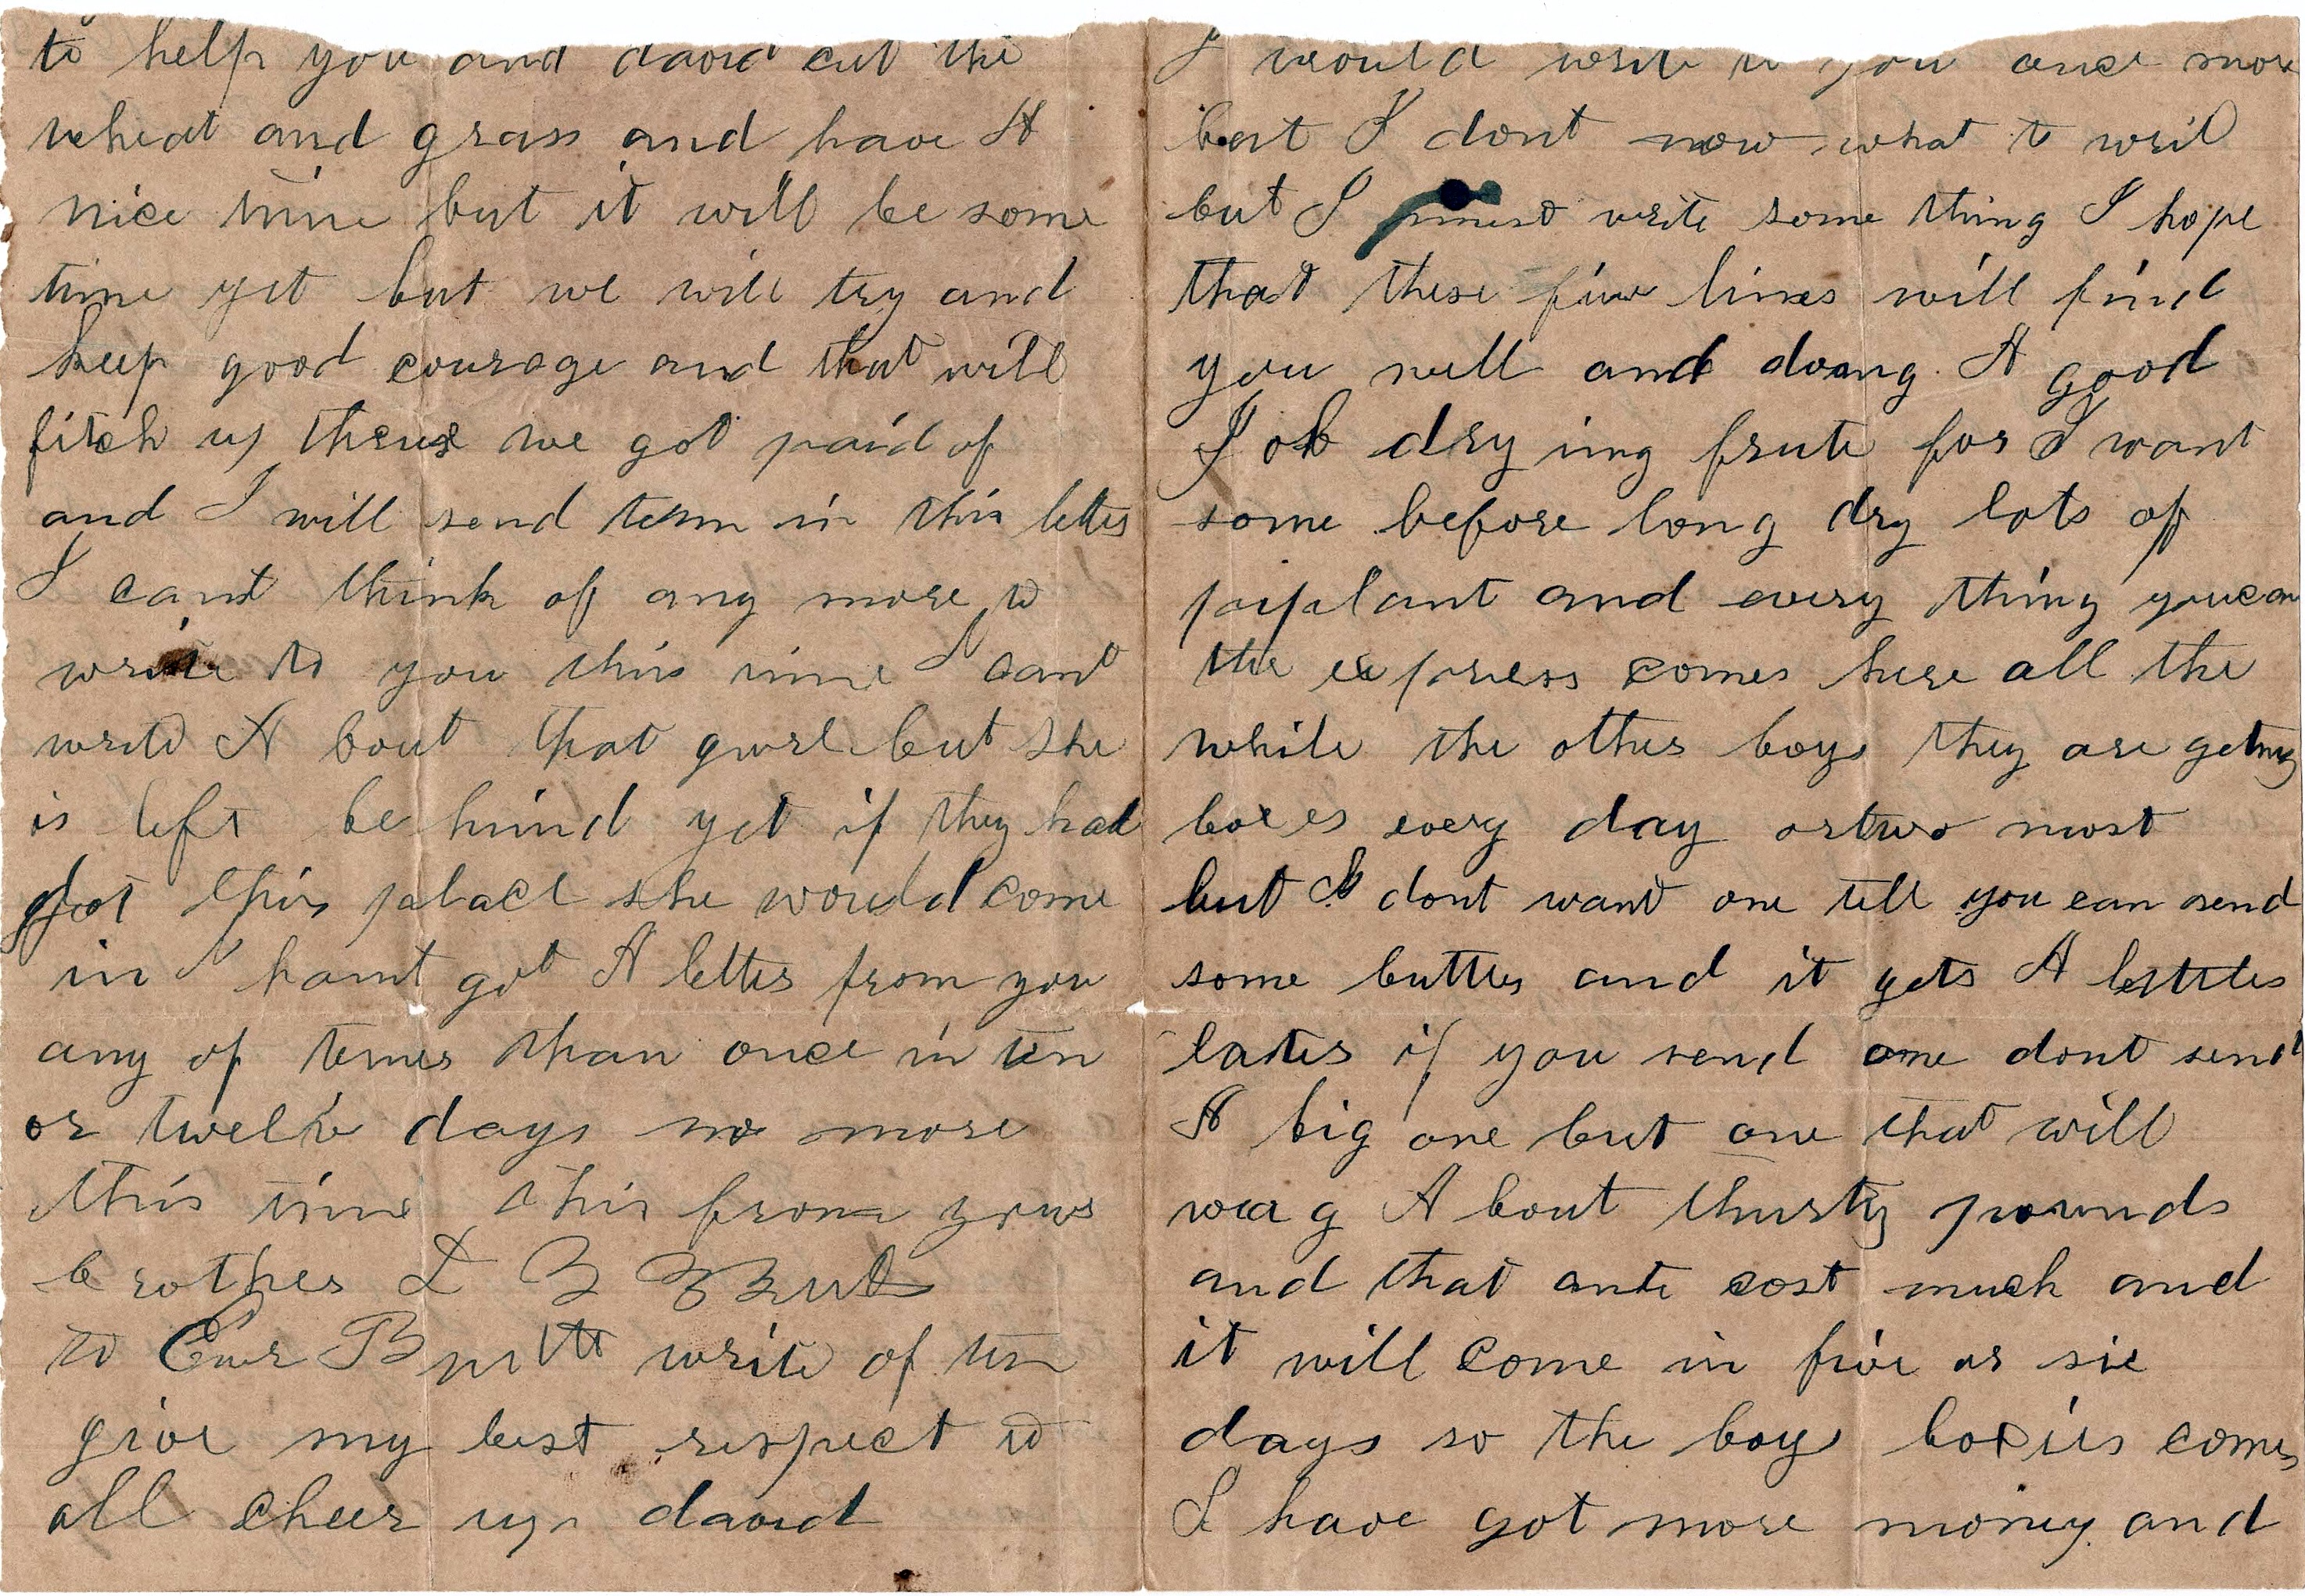 to help you and david cut the
wheat and grass and have A
nice time but it will be some
time yet but we will try and
keep good courage and that will
fitch us threw we got paid of
and I will send tenn in this letter
I cant think of any more to
write to you this time I cant
write A bout that gurl but she
is left be hind yet if they had
got this place she would come
in I hamt got A letter from you
any of tener than once in ten
or twelve days no more
this time this from your
brother L B
to write of ten
give my best respect to
all cheer up david
I would write to you once more
but I dont now what to writ
but I must write some thing I hope
that these fiew lines will find
you well and doang A good
Job drying frute for I want
some before long dry lots of
piplant and every thing you can
the express comes here all the
while the other boys they are geting
boxes every day or two most
but I dont want one tell you can send
some butter and it gets A little
later if you send one dont send
A big one but one that will
weag A bout thurty pounds
and that ante cost much and
it will come in five or six
days so the boys boxes comes
I have got more money and